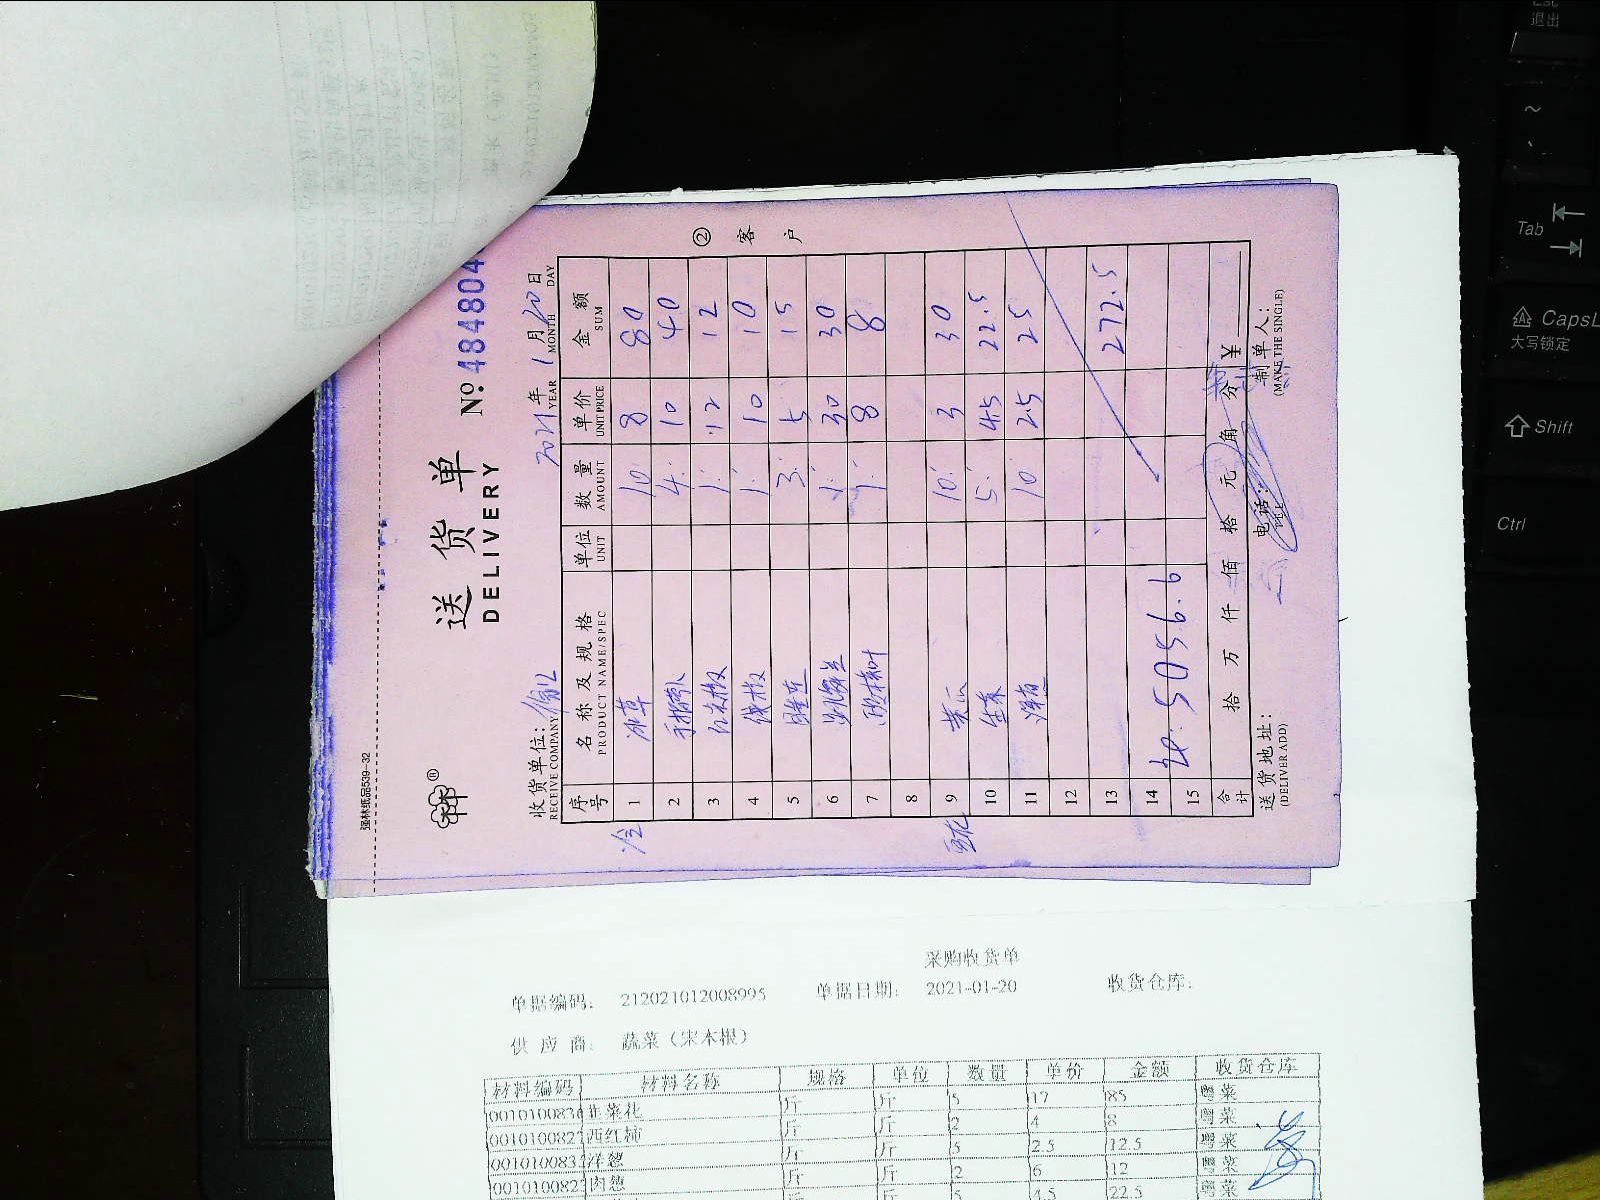 强林纸品539-32
送货单 №484804
DELIVERY
②客户
收货单位: 2021年1月20日
RECEIVE COMPANY YEAR MONTH DAY
序号 名称及规格 单位 数量 单价 金额
PRODUCT NAME/SPEC UNIT AMOUNT UNIT PRICE SUM
冷
1 冰草 10 8 80
2 手撕 4 10 40
3 红尖椒 1 12 12
4 线椒 1 10 10
5 3 5 15
6 1 30 30
7 1 8 8
8
9 黄瓜 10 3 30
10 生菜 5 4.5 22.5
11 洋葱 10 2.5 25
12
13 272.5
14
5056.6
15
合计 拾 万 仟 佰 拾 元 角 分 ¥
送货地址: 电话: 制单人:
(DELIVER ADD) (MAKE THE SINGLE)
采购收货单
单据编码: 212021012008995 单据日期: 2021-01-20 收货仓库:
供应商: 蔬菜（宋木根）
材料编码 材料名称 规格 单位 数量 单价 金额 收货仓库
001010083 韭菜花 斤 斤 5 17 85 粤菜
001010082 西红柿 斤 斤 2 4 8 粤菜
00101008 洋葱 斤 斤 5 2.5 12.5 粤菜
001010082 肉葱 斤 斤 2 6 12 粤菜
斤 斤 5 4.5 22.5 粤菜
Esc
退出
~
Tab
CapsL
大写锁定
Shift
Ctrl